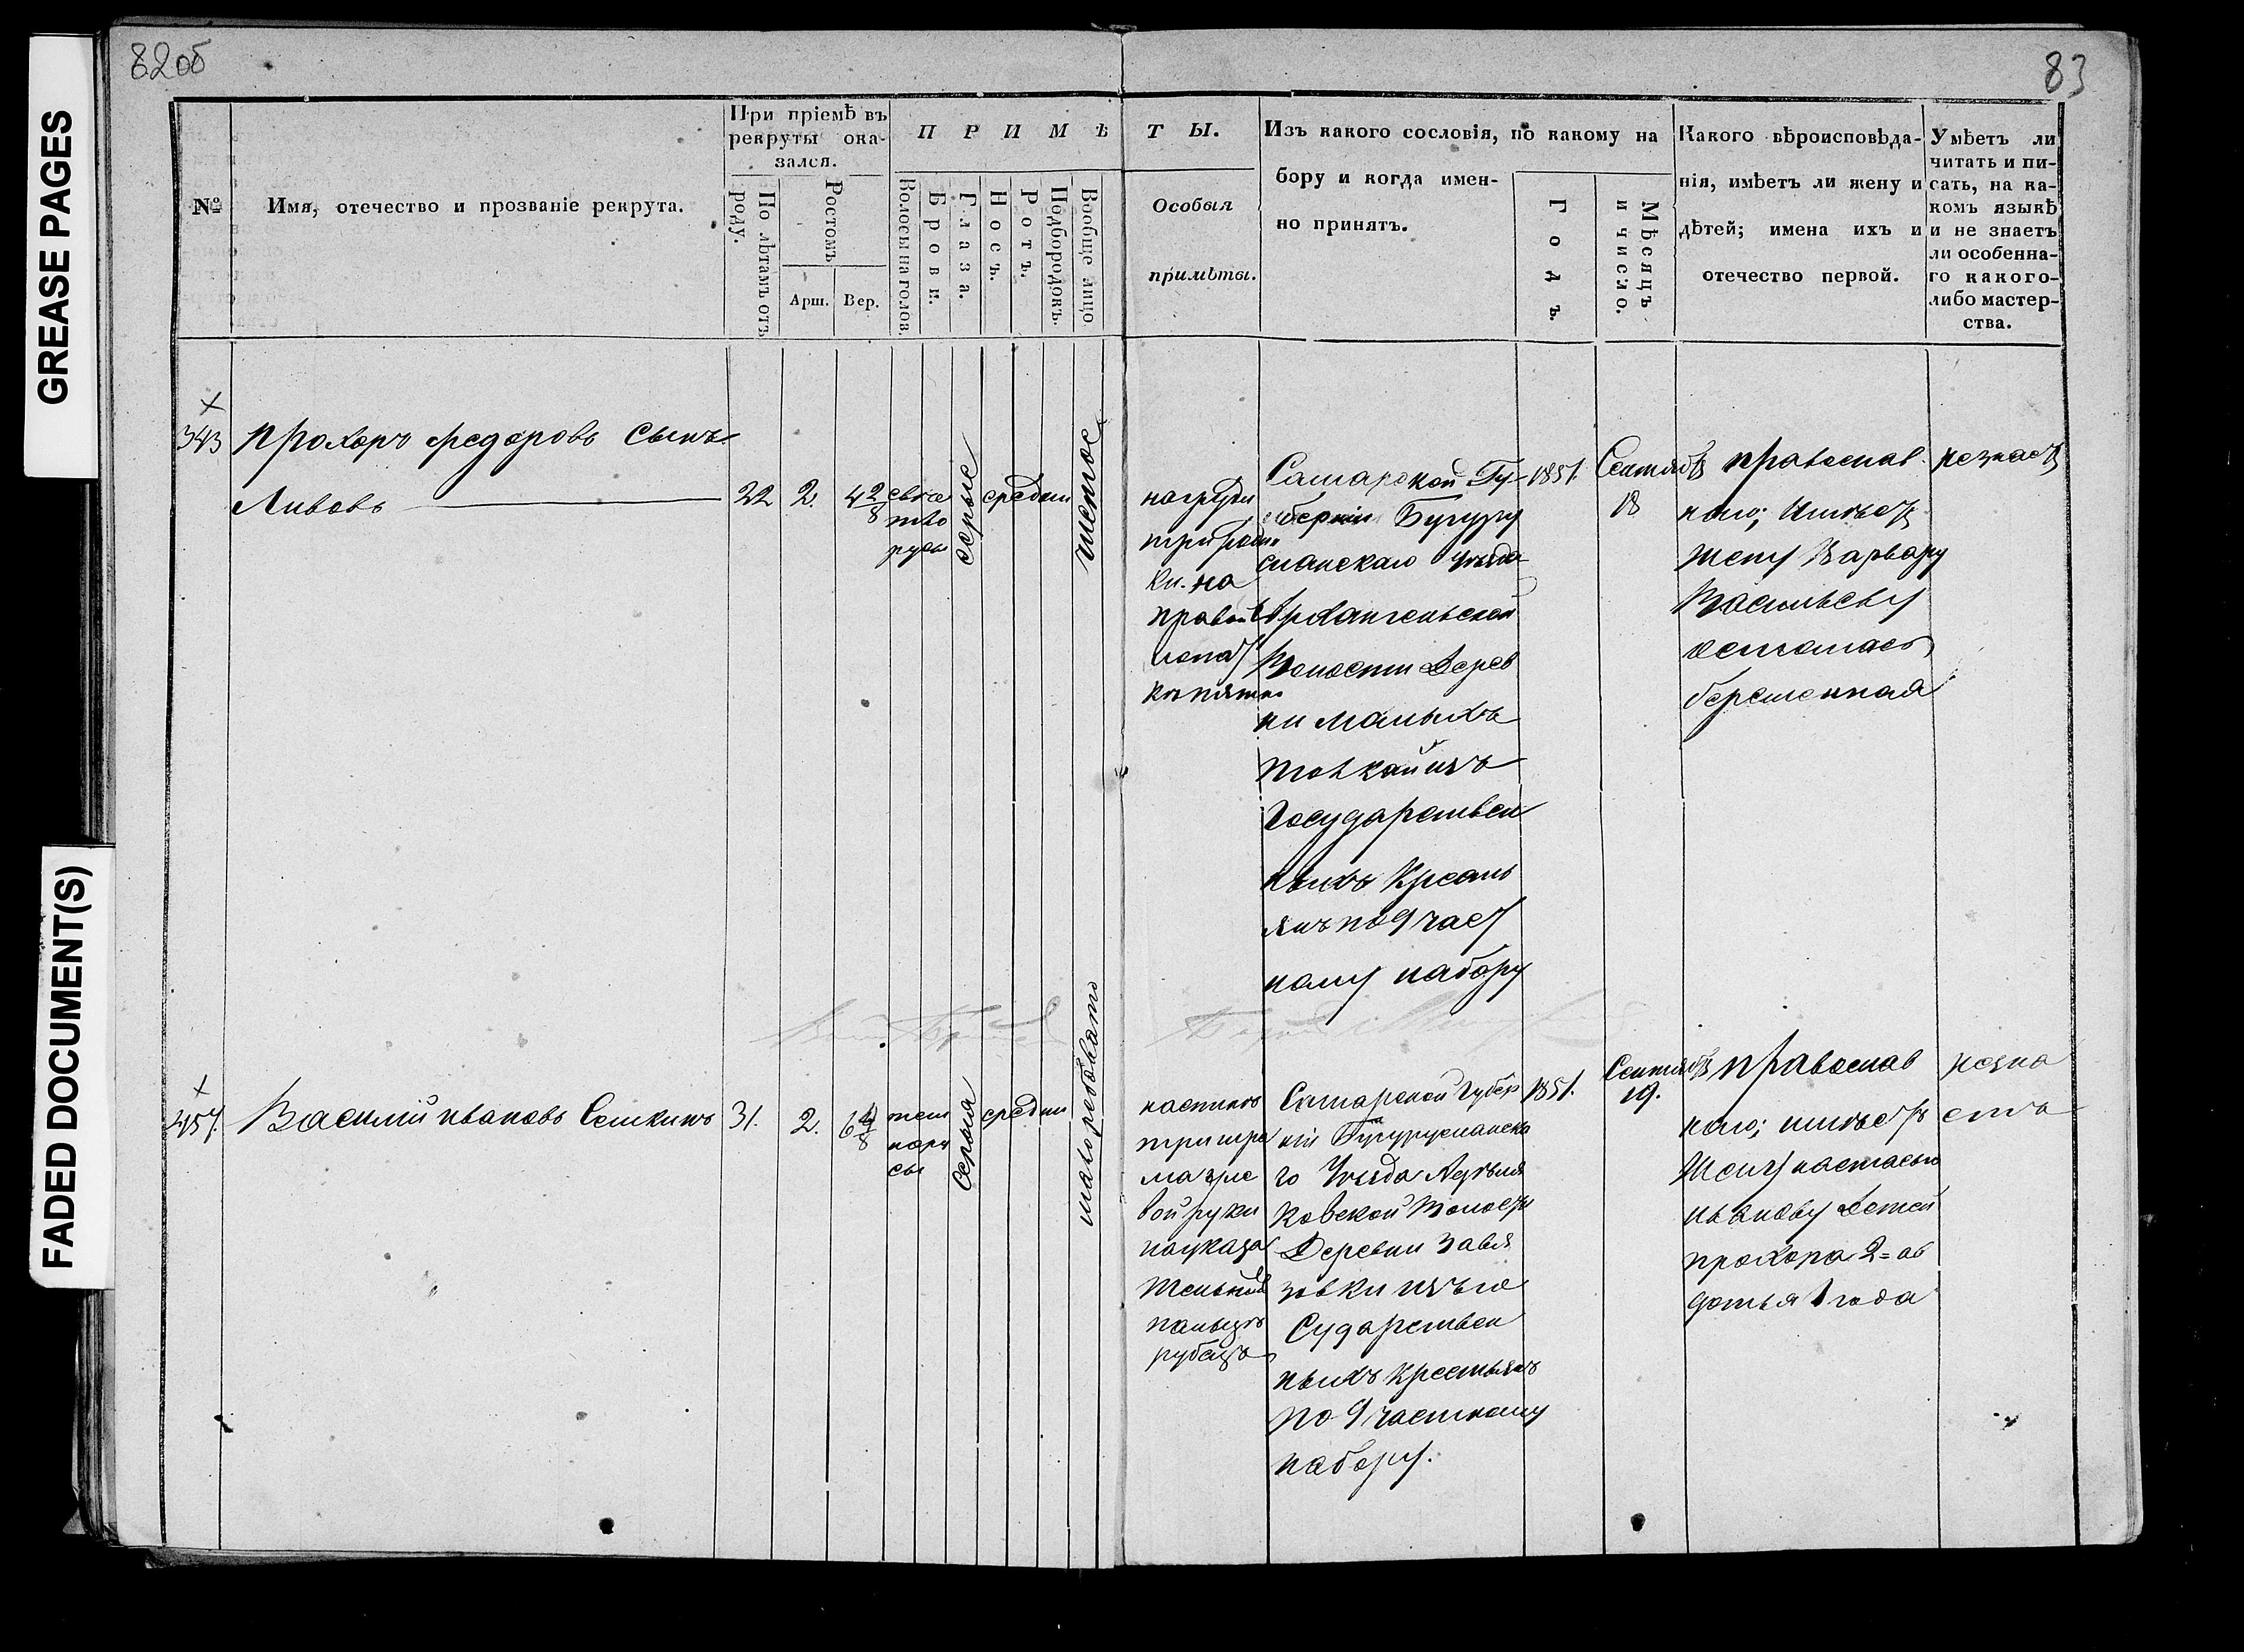 GREASE PAGES
FADED DOCUMENT(S)
82об
83
№
Имя, отечество и прозваніе рекрута.
При пріемѣ въ
рекруты ока-
зался.
По лѣтамъ отъ
роду.
Ростомъ
Арш.
Вер.
П Р И М Ѣ Т Ы.
Волосы на голов.
Брови.
Глаза.
Носъ.
Ротъ.
Подбородокъ.
Вообще лицо
Особыя
примѣты.
Изъ какого сословія, по какому на
бору и когда имен-
но принятъ.
Годъ.
Мѣсяцъ
и число.
Какого вѣроисповѣда-
нія, имѣетъ ли жену и
дѣтей; имена ихъ и
отечество первой.
Умѣетъ ли
читать и пи-
сать, на ка-
комъ языкѣ
и не знаетъ
ли особенна-
го какого-
либо мастер-
ства.
343
Прохоръ Федоровъ сынъ
Львовъ
22
2.
4 2/8
свѣт
ло
русы
серые
средни
чистое
на груди
три родин
ки. на
правой
лопат
кѣ пятно
Самарской Гу-
берніи Бугуру
сланскаго уѣзда
Архангельской
Волости Дерев
ни Малыхъ
Толкай изъ
Государствен
ныхъ Кресть
янъ по 9 част
ному набору
1851.
Сентябр
18
православ
наго; имѣетъ
жену Варвару
Васильеву
осталась
беременная
незнаетъ
457.
Василій Ивановъ Семкинъ
31.
2.
6 4/8
тем
нору
сы
серыя
средни
мало рябовато
на спинѣ
три шра
ма у ле
вой руки
на указа
тельном
пальцѣ
рубецъ
Самарской Губер
ніи Бугурусланска
го Уѣзда
ковской Волости
Деревни Завья
зовки изъ го
сударствен
ныхъ крестьянъ
по 9 частному
набору.
1851.
Сентябр
19.
православ
наго; имѣетъ
жену настасью
иванову детей
прохора 2= ав
дотья 1 года
незна
етъ